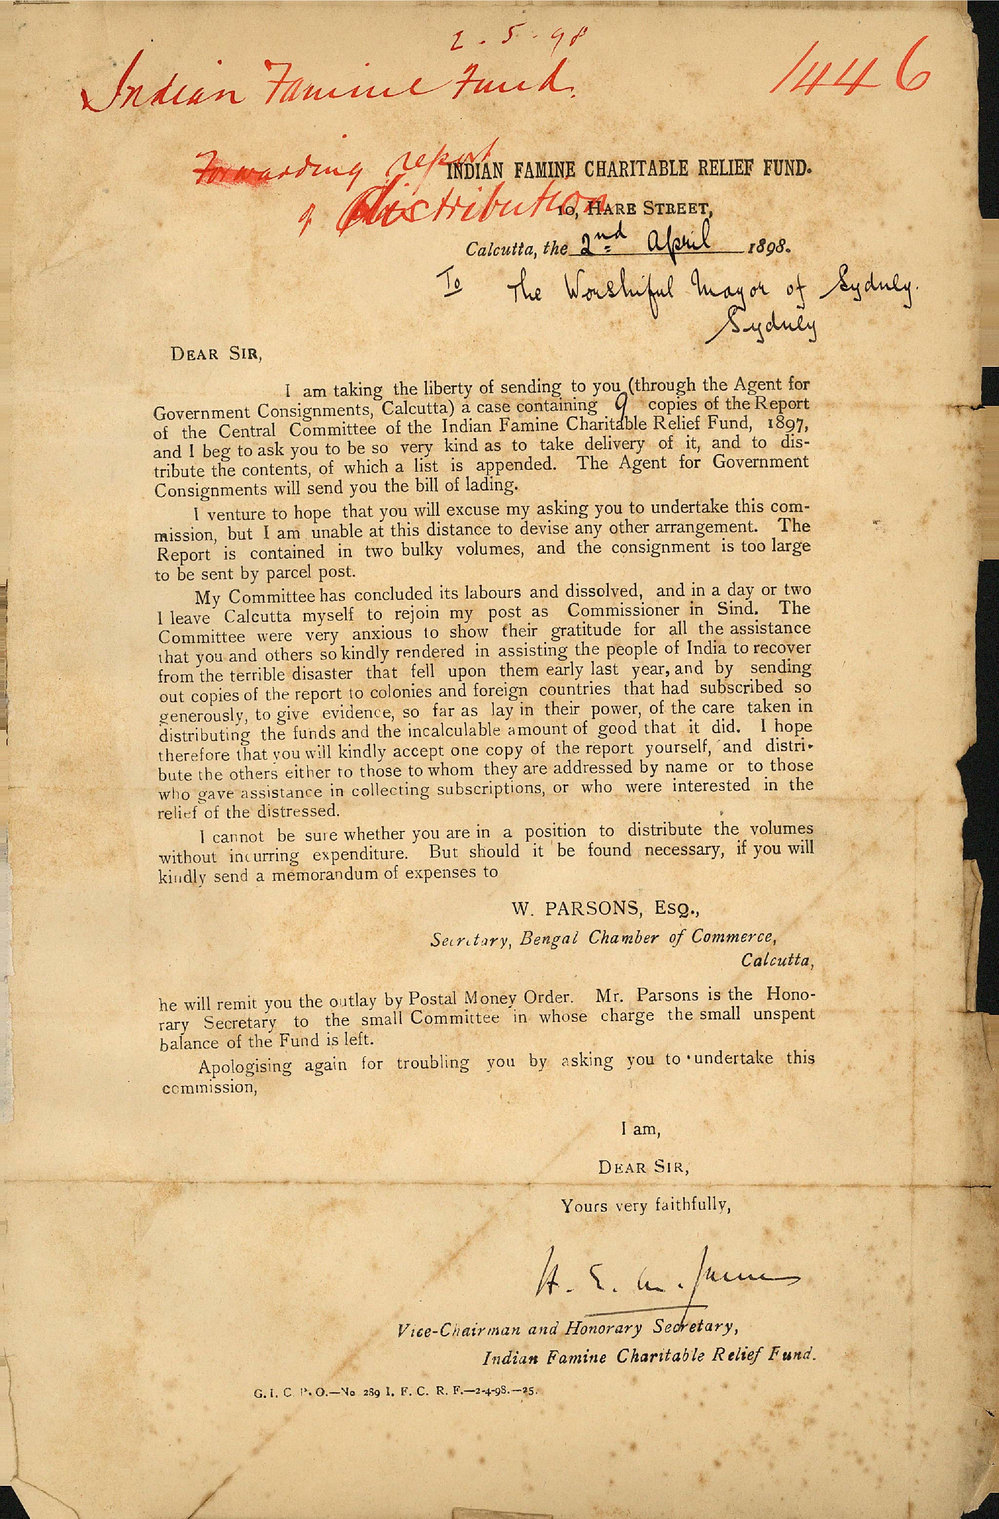 2.5.98
Indian Famine Fund.
1446
Forwarding report
of distribution
INDIAN FAMINE CHARITABLE RELIEF FUND.
10, HARE STREET,
Calcutta, the 2nd April 1898.
To The Worshipful Mayor of Sydney.
Sydney
DEAR SIR,
I am taking the liberty of sending to you (through the Agent for
Government Consignments, Calcutta) a case containing 9 copies of the Report
of the Central Committee of the Indian Famine Charitable Relief Fund, 1897,
and I beg to ask you to be so very kind as to take delivery of it, and to dis-
tribute the contents, of which a list is appended. The Agent for Government
Consignments will send you the bill of lading.
I venture to hope that you will excuse my asking you to undertake this com-
mission, but I am unable at this distance to devise any other arrangement. The
Report is contained in two bulky volumes, and the consignment is too large
to be sent by parcel post.
My Committee has concluded its labours and dissolved, and in a day or two
I leave Calcutta myself to rejoin my post as Commissioner in Sind. The
Committee were very anxious to show their gratitude for all the assistance
that you and others so kindly rendered in assisting the people of India to recover
from the terrible disaster that fell upon them early last year, and by sending
out copies of the report to colonies and foreign countries that had subscribed so
generously, to give evidence, so far as lay in their power, of the care taken in
distributing the funds and the incalculable amount of good that it did. I hope
therefore that you will kindly accept one copy of the report yourself, and distri-
bute the others either to those to whom they are addressed by name or to those
who gave assistance in collecting subscriptions, or who were interested in the
relief of the distressed.
I cannot be sure whether you are in a position to distribute the volumes
without incurring expenditure. But should it be found necessary, if you will
kindly send a memorandum of expenses to
W. PARSONS, ESQ.,
Secretary, Bengal Chamber of Commerce,
Calcutta,
he will remit you the outlay by Postal Money Order. Mr. Parsons is the Hono-
rary Secretary to the small Committee in whose charge the small unspent
balance of the Fund is left.
Apologising again for troubling you by asking you to undertake this
commission,
I am,
DEAR SIR,
Yours very faithfully,
H. E. M. James
Vice-Chairman and Honorary Secretary,
Indian Famine Charitable Relief Fund.
G. I. C. P. O.—No 289 I. F. C. R. F.—2-4-98.—25.